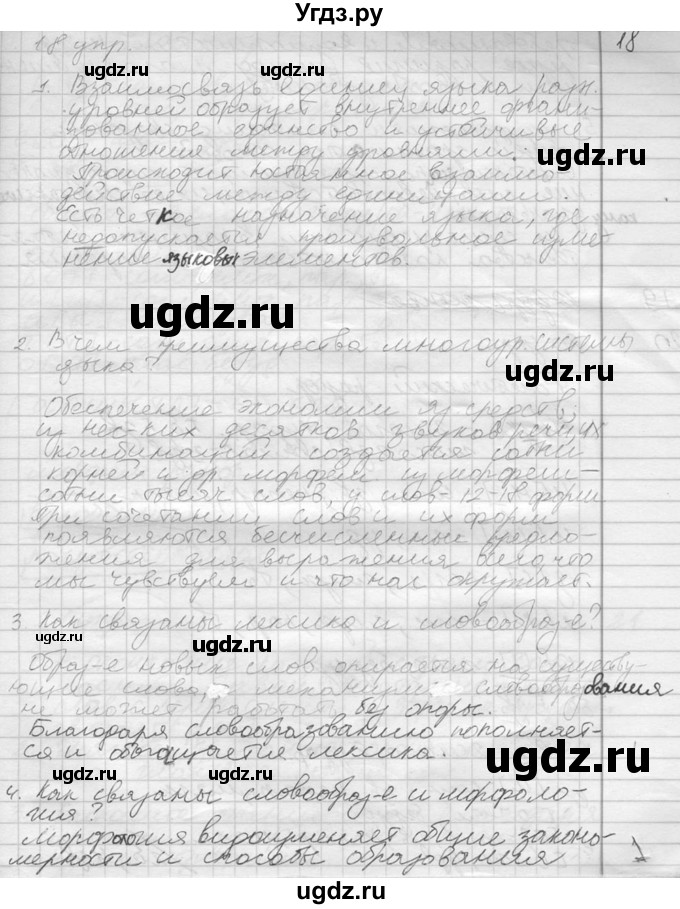 Угдз.ру
18 упр. 18
1. Взаимосвязь единиц языка разн.
уровней образует внутренне органи-
зованное единство и устойчивые
отношения между уровнями.
Происходит постоянное взаимо-
действие между единицами.
Есть четкое назначение языка, где
недопускается произвольное изме-
нение языковых элементов.
2. В чем преимущества многоур. системы
языка?
Обеспечение экономии яз. средств;
из нес-ких десятков звуков речи их
комбинаций создается сотни
корней и др. морфем из морфем-
сотни тысяч слов, у слов - 12-18 форм
При сочетании слов и их форм
появляются бесчисленные предло-
жения для выражения всего, что
мы чувствуем и что нас окружает.
3 Как связаны лексика и словообраз-е?
Образ-е новых слов опирается на существу-
ющие слова, механизм словообразования
не может работать без опоры.
Благодаря словообразованию пополняет-
ся и обогащается лексика.
4. Как связаны словообраз-е и морфоло-
гия?
Морфология видоизменяет общие законо-
мерности и способы образования
ugdz.ru
ugdz.ru
ugdz.ru
ugdz.ru
ugdz.ru
ugdz.ru
ugdz.ru
ugdz.ru
ugdz.ru
ugdz.ru
ugdz.ru
ugdz.ru